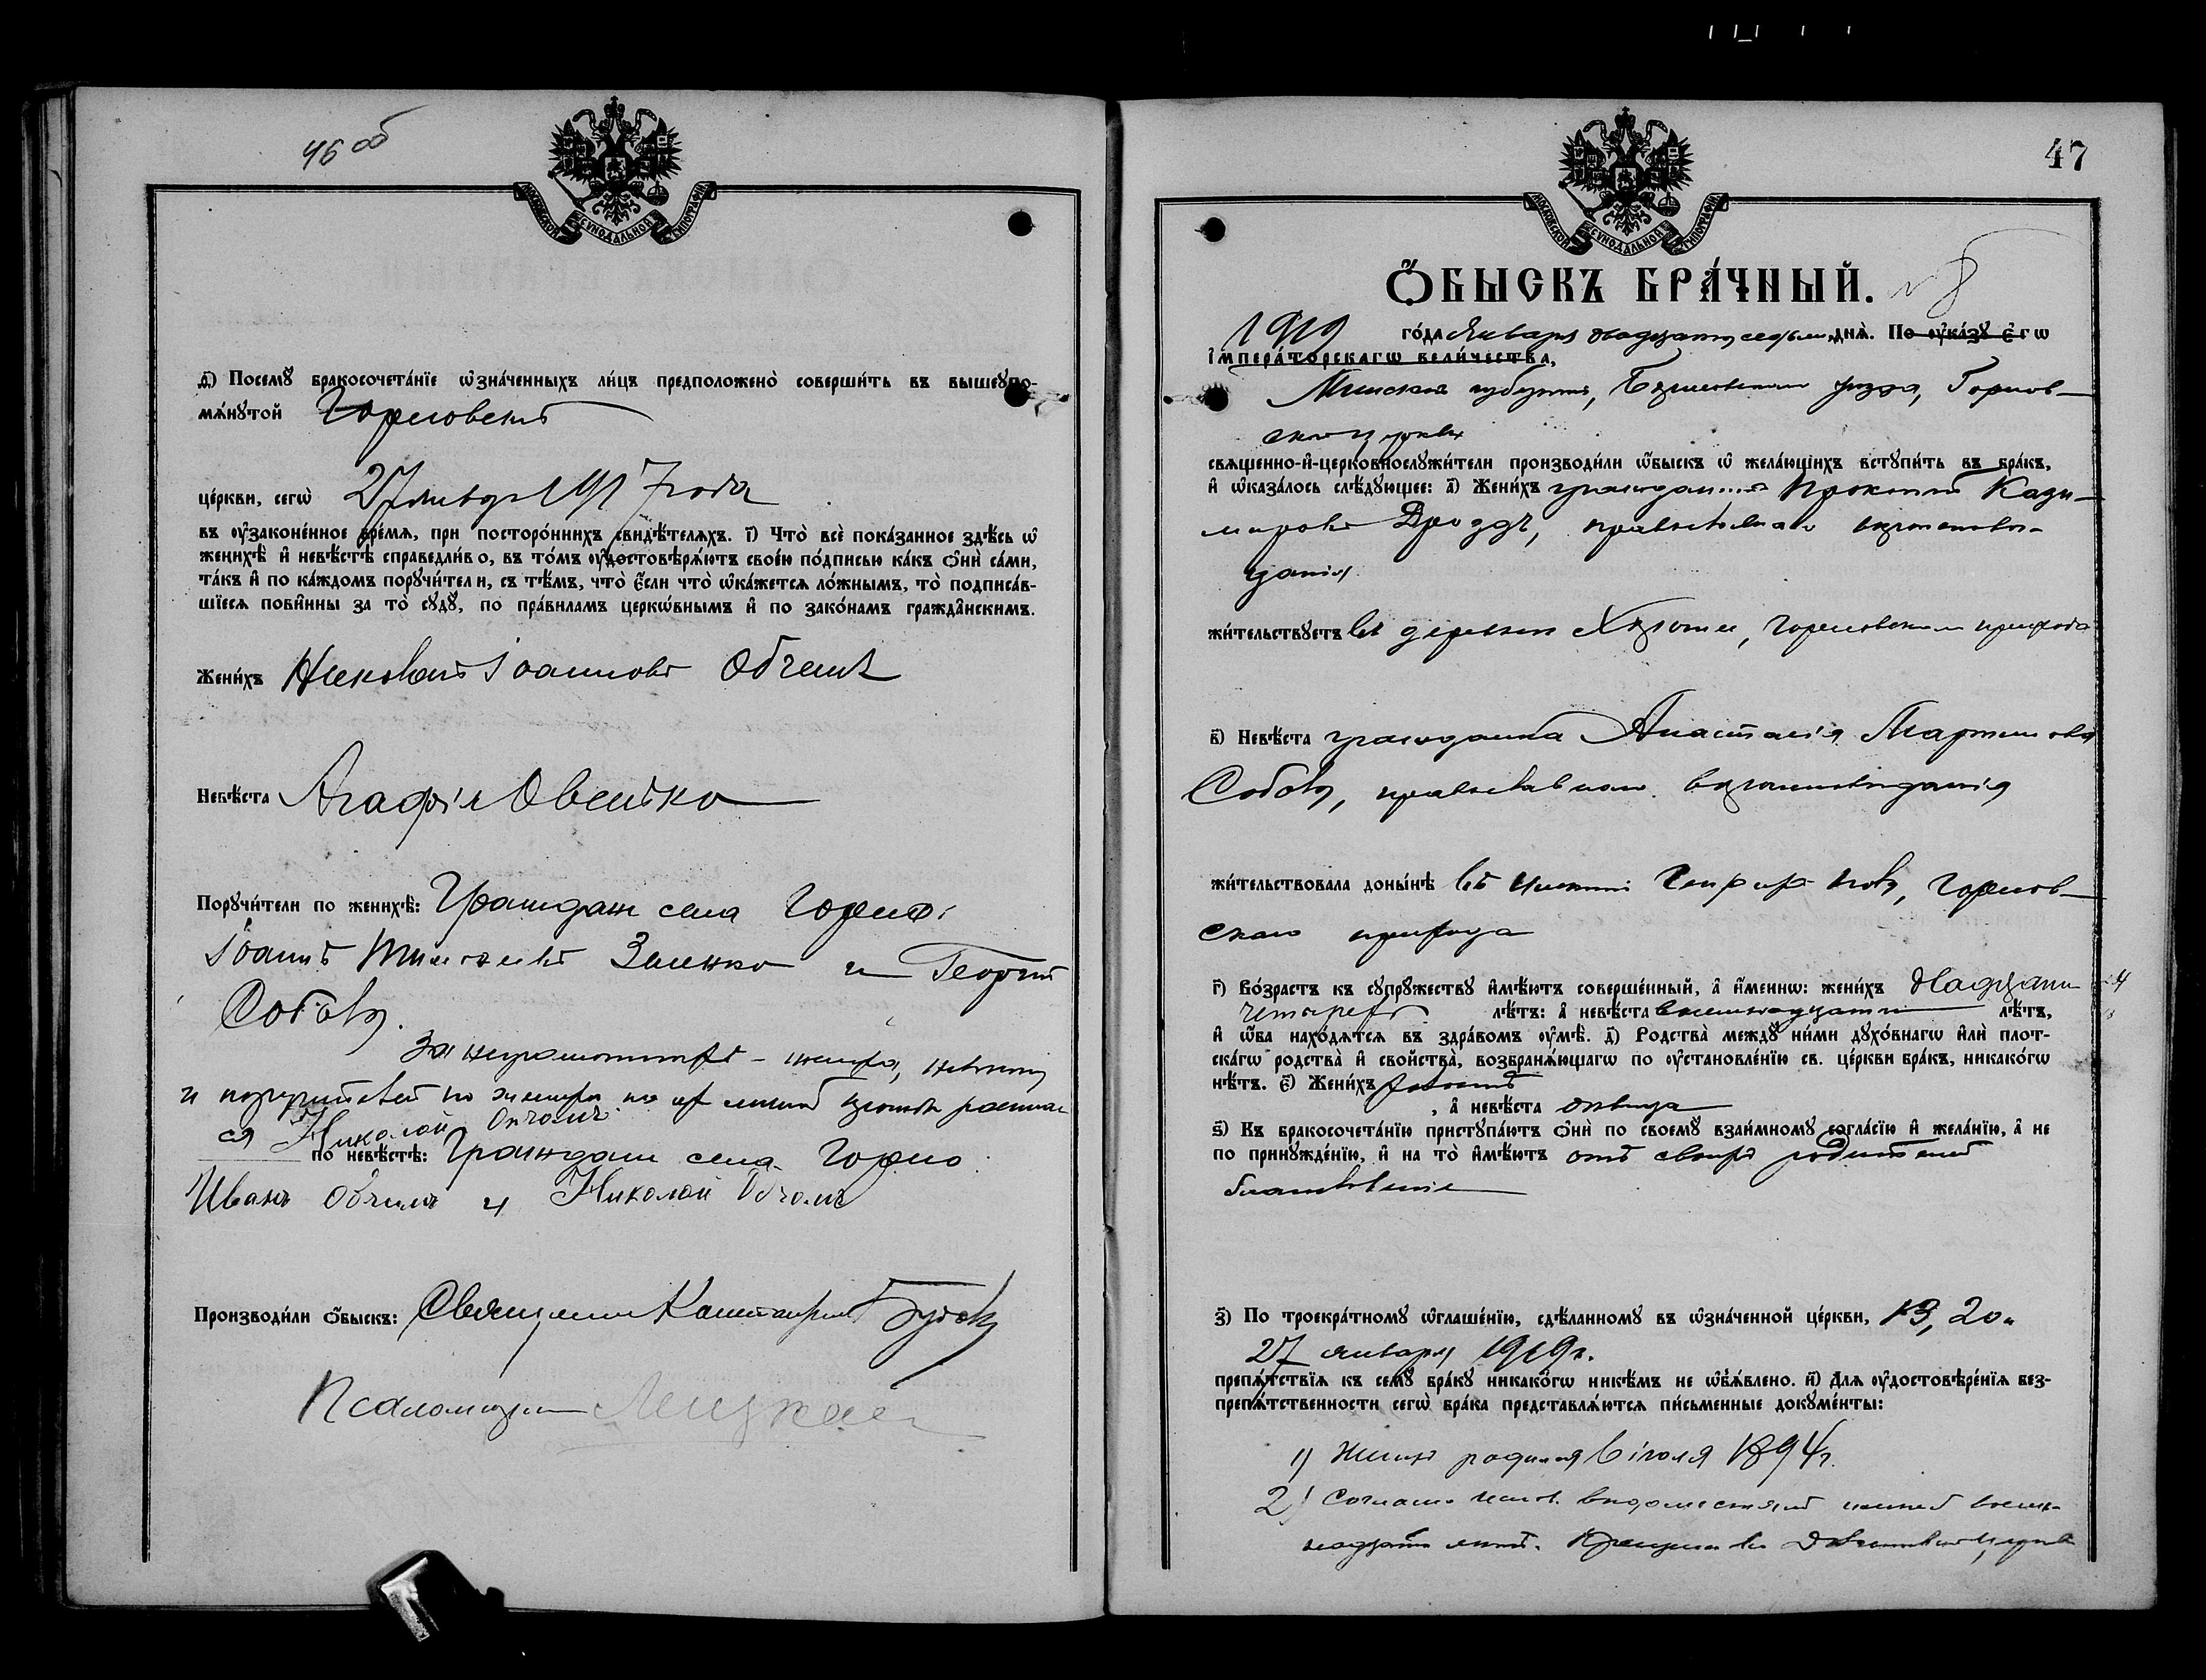 46 об
МОСКОВСКОЙ СѴНОДАЛЬНОЙ ТИПОГРАФІИ
д҃) Посемꙋ бракосочета́нїе ѡ҆зна́ченныхъ ли́цъ предположено̀ соверши́ть въ вышеꙋпо-
мѧ́нꙋтой Горновской
це́ркви, сегѡ̀ 27 января 1917 года
въ ᲂу҆законе́нное вре́мѧ, при посторо́ннихъ свидѣ́телѧхъ. і҃) Что̀ всѐ пока́занное здѣ́сь ѡ҆
женихѣ̀ и҆ невѣ́стѣ справедли́во, въ то́мъ ᲂу҆достовѣрѧ́ютъ свое́ю по́дписью ка́къ ѻ҆нѝ са́ми,
та́къ и҆ по ка́ждомъ порꙋчи́тели, съ тѣ́мъ, что̀ є҆́сли что̀ ѡ҆ка́жетсѧ ло́жнымъ, то̀ подписа́в-
шїесѧ пови́нны за то̀ сꙋдꙋ̀, по пра́виламъ церкѡ́внымъ и҆ по зако́намъ гражда́нскимъ.
Жени́хъ Николай Іоанновъ Обчемъ
Невѣ́ста Агафія Овсейко
Порꙋчи́тели по женихѣ̀: Граждане села Горно:
Іоаннъ Зиенко и Георгій
Соболь.
За неграмотныхъ – жениха, невѣсту
и поручителей по женихѣ по ихъ личной просьбѣ расписал
ся Николай Обчемъ
по невѣ́стѣ: Граждане села Горно:
Иванъ Обчемъ и Николай Обчемъ
Производи́ли ѻ҆́быскъ: Священникъ Константинъ
Псаломщикъ
47
МОСКОВСКОЙ СѴНОДАЛЬНОЙ ТИПОГРАФІИ
Ѻ҆́БЫСКЪ БРА́ЧНЫЙ. № 8
1919 го́да Января двадцать седьмого днѧ̀. По ᲂу҆ка́зꙋ є҆гѡ̀
і҆мпера́торскагѡ вели́чества,
Минской губерніи, уѣзда, Горнов-
ской церкви
свѧще́нно-и҆-церковнослꙋжи́тели производи́ли ѻ҆́быскъ ѡ҆ жела́ющихъ встꙋпи́ть въ бра́къ,
и҆ ѡ҆каза́лось слѣ́дꙋющее: а҃) Жени́хъ гражданинъ Прокопій Кази-
міровъ Дроздъ, православнаго вѣроисповѣ-
данія
жи́тельствꙋетъ въ деревнѣ Горновскаго прихода
в҃) Невѣ́ста гражданка Анастасія Мартинова
Соболь, православнаго вѣроисповѣданія
жи́тельствовала доны́нѣ въ имѣніи Горнов-
скаго прихода
г҃) Во́зрастъ къ сꙋпрꙋ́жествꙋ и҆мѣ́ютъ соверше́нный, а҆ и҆́меннѡ: жени́хъ двадцати 24
четырехъ лѣ́тъ: а҆ невѣ́ста восемнадцати лѣ́тъ,
и҆ ѻ҆́ба нахо́дѧтсѧ въ здра́вомъ ᲂу҆мѣ̀. д҃) Родства̀ междꙋ̀ ни́ми дꙋхо́внагѡ и҆лѝ пло́т-
скагѡ родства̀ и҆ сво́йства̀, возбранѧ́ющагѡ по ᲂу҆становле́нїю св. це́ркви бра́къ, никако́гѡ
нѣ́тъ. є҃) Жени́хъ холостъ
, а҆ невѣ́ста дѣвица
ѕ҃) Къ бракосочета́нїю пристꙋпа́ютъ ѻ҆нѝ по своемꙋ̀ взаи́мномꙋ согла́сїю и҆ жела́нїю, а҆ не
по принꙋжде́нїю, и҆ на то̀ и҆мѣ́ютъ отъ своихъ родителей
благословеніе
з҃) По троекра́тномꙋ ѡ҆глаше́нїю, сдѣ́ланномꙋ въ ѡ҆зна́ченной це́ркви, 13, 20 и
27 января 1919 г.
препѧ́тствїѧ къ семꙋ̀ бра́кꙋ никако́гѡ никѣ́мъ не ѡ҆б̾ѧ́влено. и҃) Длѧ ᲂу҆достовѣре́нїѧ без-
препѧ́тственности сегѡ̀ бра́ка представлѧ́ютсѧ пи́сьменные докꙋме́нты:
1) Женихъ родился 6 іюля 1894 г.
2) Согласно восем-
надцать лѣтъ.